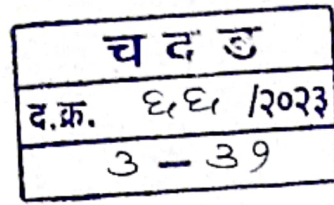 च द ड
द.क्र. ६६ /२०२३
३ — ३१